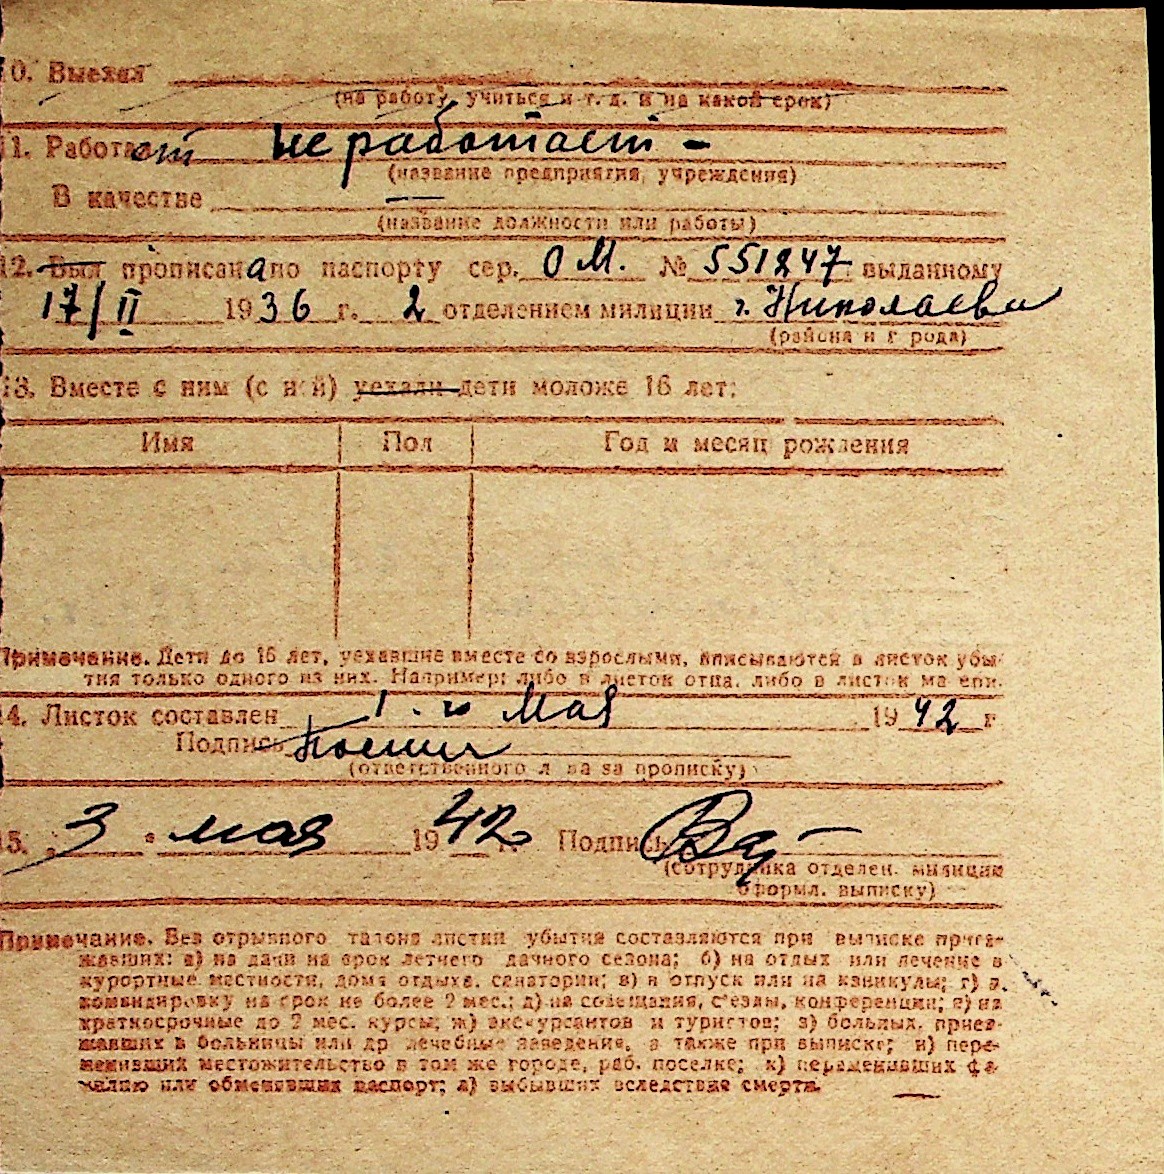 10. Выехал
(на работу, учиться и т. д. и на какой срок)
11. Работает не работает -
(название предприятия, учреждения)
В качестве —
(название должности или работы)
12. Был прописана по паспорту сер. ОМ. № 551247 выданному
17/II 1936 г. 2 отделением милиции г. Николаева
(района и города)
13. Вместе с ним (с ней) уехали дети моложе 16 лет:
Имя Пол Год и месяц рождения
Примечание. Дети до 16 лет, уехавшие вместе со взрослыми, вписываются в листок убы-
тия только одного из них. Например: либо в листок отца, либо в листок матери.
14. Листок составлен 1-го Мая 1942 г
Подпись
(ответственного лица за прописку)
15. „3“ мая 1942 г. Подпись
(сотрудника отделен. милиции
оформл. выписку)
Примечание. Без отрывного талона листки убытия составляются при выписке приез-
жавших: а) на дачи на срок летнего дачного сезона; б) на отдых или лечение в
курортные местности, дома отдыха, санатории; в) в отпуск или на каникулы; г) в
командировку на срок не более 2 мес.; д) на совещания, с'езды, конференции; е) на
краткосрочные до 2 мес. курсы; ж) экскурсантов и туристов; з) больных, приез-
жавших в больницы или др лечебные заведения, а также при выписке; и) пере-
менивших местожительство в том же городе, раб. поселке; к) переменивших фа-
милию или обменявших паспорт; л) выбывших вследствие смерти.